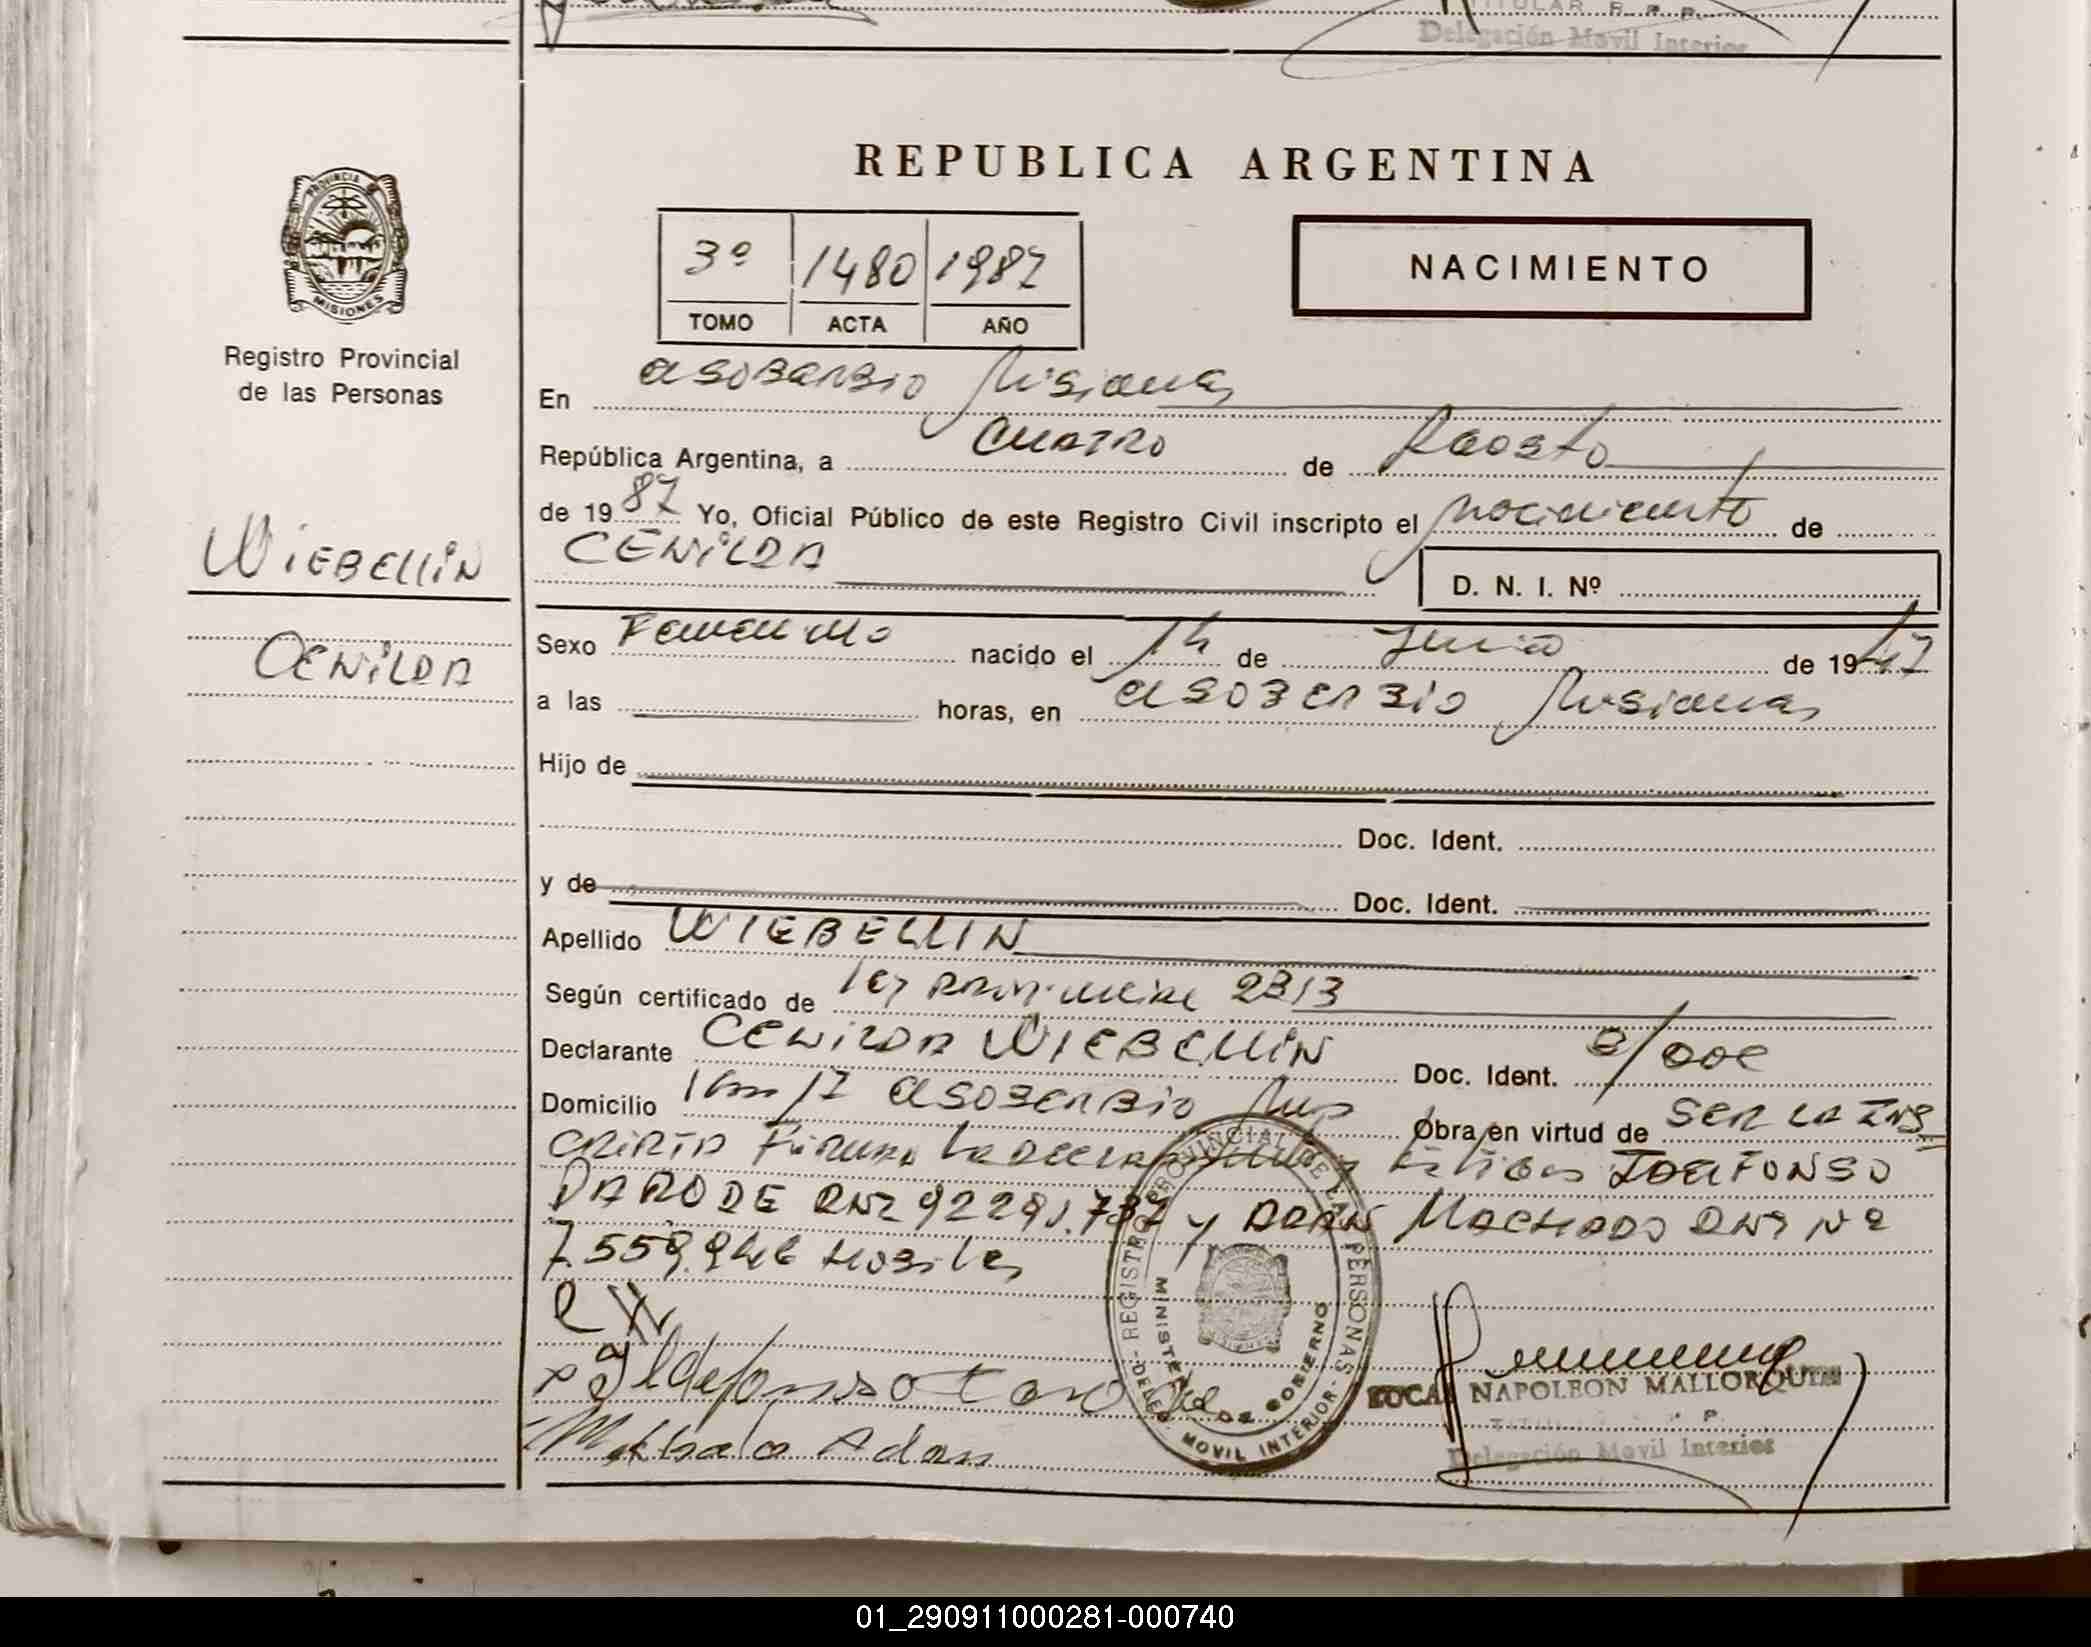 TITULAR R. P. P.
Delegación Movil Interior
REPUBLICA ARGENTINA
PROVINCIA DE
MISIONES
3º 1480 1987
TOMO ACTA AÑO
NACIMIENTO
Registro Provincial
de las Personas
En Misiones
República Argentina, a Cuatro de Agosto
de 1987 Yo, Oficial Público de este Registro Civil inscripto el nacimiento de
CENILDA
D. N. I. Nº
WIEBELLIN
CENILDA
Sexo Femenino nacido el 14 de Junio de 19
a las horas, en Misiones
Hijo de
Doc. Ident.
y de Doc. Ident.
Apellido WIEBELLIN
Según certificado de ley Provincial 2313
Declarante CENILDA WIEBELLIN Doc. Ident.
Domicilio Km 17 Obra en virtud de SER LA INS
CRIPTA Firman la declarante y testigos ILDEFONSO
DNI 92291.737 y ADAN MACHADO DNI Nº
7.559.946
x Ildefonso
Adan
REGISTRO PROVINCIAL DE LAS PERSONAS
MINISTERIO DE GOBIERNO
DELEG. MOVIL INTERIOR
LUCAS NAPOLEON MALLORQUIN
Delegación Movil Interior
01_290911000281-000740